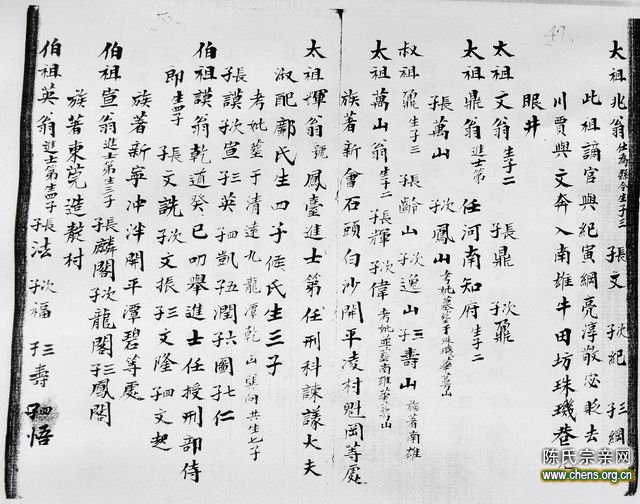 49
太祖兆翁 仕為縣令生子三 長文 次紀 三綱
此祖謫官與紀寅綱亮淳敬宓貶去
川賈與文奔入南雄牛田坊珠璣巷
眼井
太祖文翁 生子二 長鼎 次鼐
太祖鼎翁 進士第 任河南知府 生子二
長子萬山 次子鳳山 考妣墓 葬于珠璣 萬山
叔祖鼐 生子三 長子齡山 次子逸山 三子壽山 族著南雄
太祖萬山翁 生子二 長子輝 次子偉 考妣 葬 南雄 萬山
族著新會石頭白沙開平凌村魁岡等處
太祖輝翁 號 鳳臺進士第任刑科諫議大夫
淑配鄺氏生四子 侯氏生三子
考妣墓于清遠九龍潭乾山 向共生七子
長子謨 次子宣 三子英 四子凱 五子閏 六子圖 七子仁
伯祖謨翁乾道癸巳叨舉進士任授刑部侍
郎 生四子 長子文詵 次子文振 三子文隆 四子文起
族著新寧沖泮開平潭碧等處
伯祖宣翁 進士第生三子 長子麟閣 次子龍閣 三子鳳閣
族著東莞造 村
伯祖英翁 進士第生四子 長子法 次子福 三子壽 四子悟
陈氏宗亲网
www.chens.org.cn